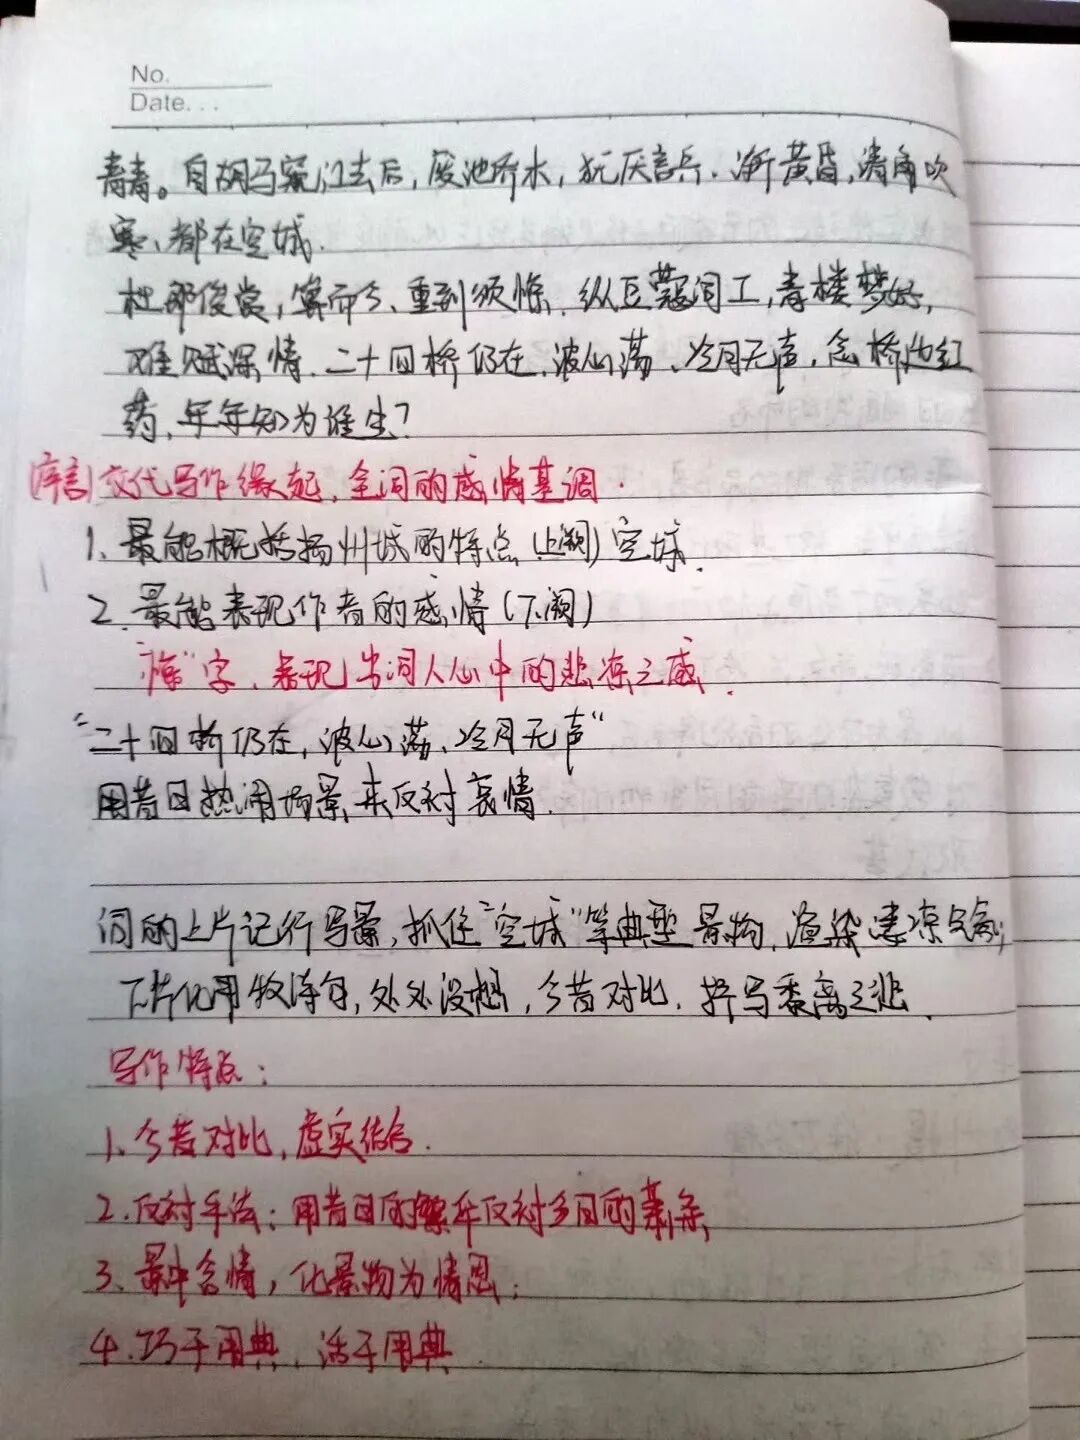 No.
Date...
青青。自胡马窥江去后，废池乔木，犹厌言兵．渐黄昏，清角吹
寒、都在空城．
杜郎俊赏，算而今、重到须惊．纵豆蔻词工，青楼梦好，
难赋深情．二十四桥仍在，波心荡、冷月无声，念桥边红
药，年年知为谁生？
(序言)交代写作缘起，全词的感情基调．
1、最能概括扬州城的特点(上阕)空城．
2．最能表现作者的感情(下阕)
"惊"字、表现出词人心中的悲凉之感．
"二十四桥仍在，波心荡、冷月无声"
用昔日热闹场景，来反衬哀情．
词的上片记行写景，抓住"空城"等典型景物，渲染凄凉气氛；
下片化用牧诗句，处处设想，今昔对比．抒写黍离之悲．
写作特点：
1、今昔对比，虚实结合．
2．反衬手法：用昔日的繁华反衬今日的萧条
3、景中含情，化景物为情思；
4．巧于用典、活于用典．